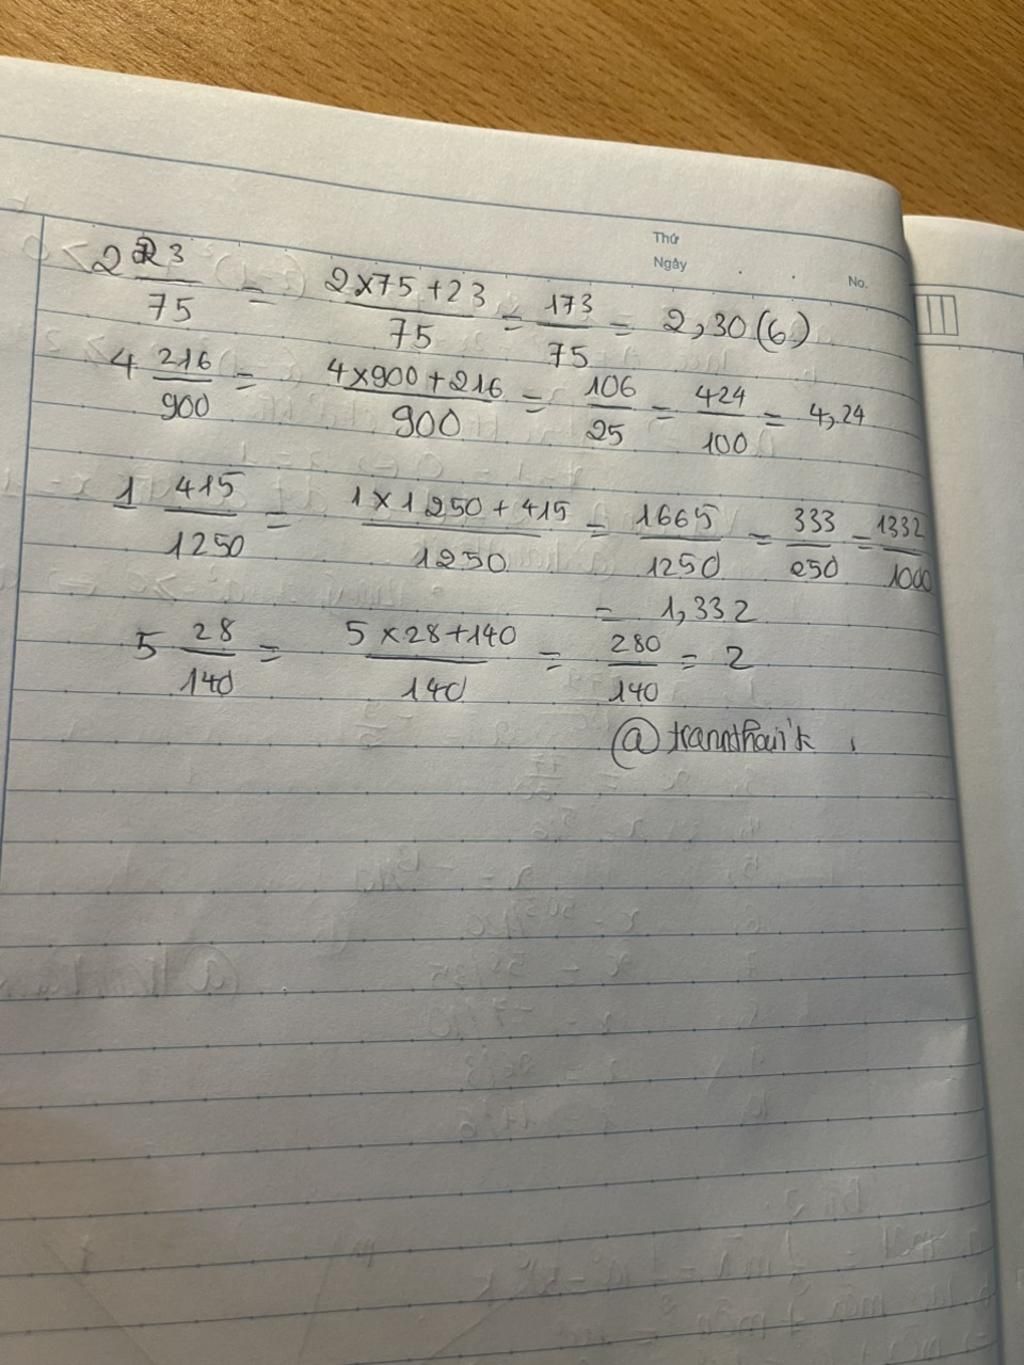 Thứ
Ngày
No.
2 23/75 = (2x75+23)/75 = 173/75 = 2,30(6)
4 216/900 = (4x900+216)/900 = 106/25 = 424/100 = 4,24
1 415/1250 = (1x1250+415)/1250 = 1665/1250 = 333/250 = 1332/1000
= 1,332
5 28/140 = (5x28+140)/140 = 280/140 = 2